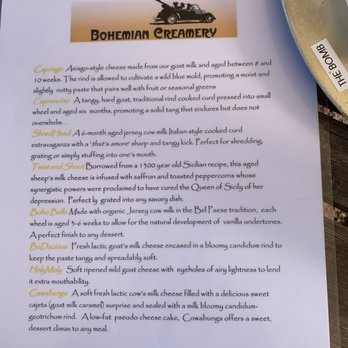 BOHEMIAN CREAMERY
THE BOMB
Capriago Asiago-style cheese made from our goat milk and aged between 8 and
10 weeks. The rind is allowed to cultivate a wild blue mold, promoting a moist and
slightly nutty paste that pairs well with fruit or seasonal greens
Caproncino A tangy, hard goat, traditional rind cooked curd pressed into small
wheel and aged six months, promoting a solid tang that endures but does not
overwhelm. .
ShredHead A 6-month aged jersey cow milk Italian style cooked curd
extravaganza with a 'that's amore' sharp and tangy kick. Perfect for shredding,
grating or simply stuffing into one's mouth.
Twist and Shout Borrowed from a 1300 year old Sicilian recipe, this aged
sheep's milk cheese is infused with saffron and toasted peppercorns whose
synergistic powers were proclaimed to have cured the Queen of Sicily of her
depression. Perfect ly grated into any savory dish.
Boho Belle Made with organic Jersey cow milk in the Bel Paese tradition, each
wheel is aged 5-6 weeks to allow for the natural development of vanilla undertones.
A perfect finish to any dessert.
BoDacious Fresh lactic goat's milk cheese encased in a bloomy candidum rind to
keep the paste tangy and spreadably soft.
HolyMoly Soft ripened mild goat cheese with eyeholes of airy lightness to lend
it extra mouthability.
Cowabunga A soft fresh lactic cow's milk cheese filled with a delicious sweet
cajeta (goat milk caramel) surprise and sealed with a milk bloomy candidum-
geotrichum rind. A low-fat pseudo cheese cake, Cowabunga offers a sweet,
dessert climax to any meal.